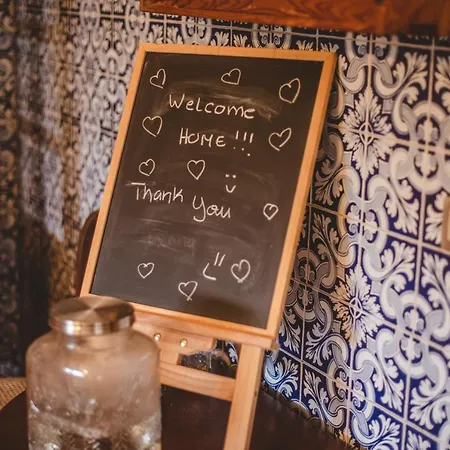 Welcome
HOME !!!
Thank You